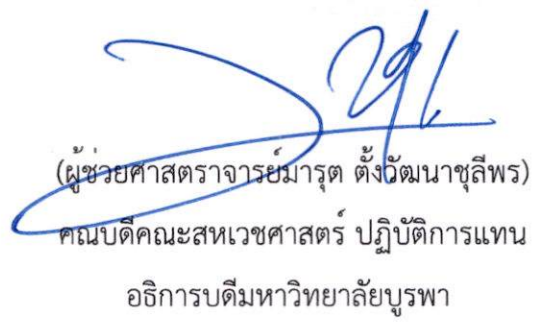 (ผู้ช่วยศาสตราจารย์มารุต ตั้งวัฒนาชุลีพร)
คณบดีคณะสหเวชศาสตร์ ปฏิบัติการแทน
อธิการบดีมหาวิทยาลัยบูรพา